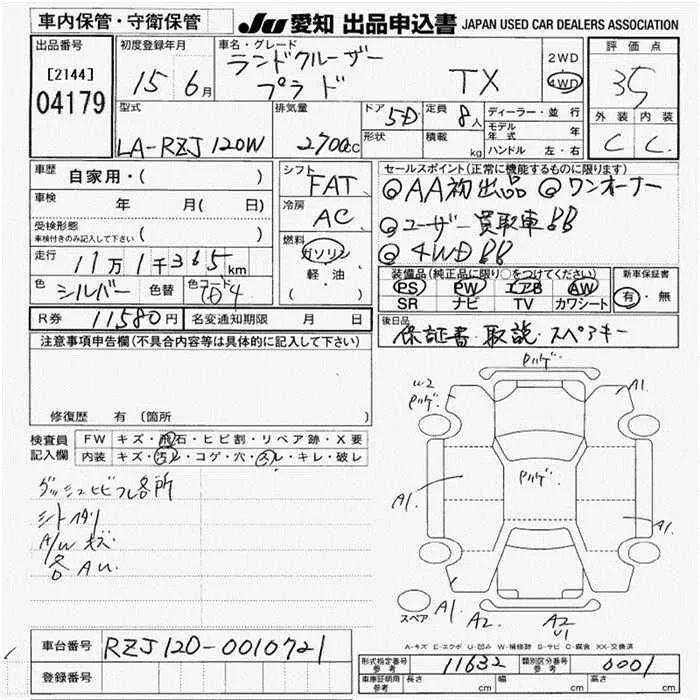 車内保管・守衛保管 JU 愛知 出品申込書 JAPAN USED CAR DEALERS ASSOCIATION
出品番号 初度登録年月 車名・グレード 2WD 評価点
[2144] 15 6月 ランドクルーザー プラド TX 4WD 35
04179 型式 排気量 ドア 定員 ディーラー・並行 外装 内装
LA-RZJ120W 2700CC 5D 8人 モデル年式 年 C C
形状 積載 kg ハンドル 左・右
車歴 自家用・( ) シフト FAT セールスポイント(正常に機能するものに限ります)
車検 年 月( 日) 冷房 AC @AA初出品 @ワンオーナー
受検形態 車検付きのみ記入して下さい ( ) @ユーザー買取車
燃料 ガソリン @4WD
走行 11万1千365km 軽・油 装備品(純正品に限り○をつけてください) 新車保証書
色 シルバー 色替 色コード ( ) PS PW エアB AW 有・無
SR ナビ TV カワシート
R券 11,580円 名変通知期限 月 日 後日品
注意事項申告欄(不具合内容等は具体的に記入して下さい) 保証書・取説・スペアキー
修復歴 有(箇所
検査員 FW キズ・飛石・ヒビ割・リペア跡・X要
記入欄 内装 キズ・汚レ・コゲ・穴・スレ・キレ・破レ
W2
A1
A1
A1
A1 A2 A2
U1
スペア
A/W キズ
A-キズ E-エクボ U-凹み W-補修跡 S-サビ C-腐食 XX-交換済
車台番号 RZJ120-0010721
登録番号
形式指定番号 参考 11632 類別区分番号 参考 0001
車庫証明用 参考 長さ cm 幅 cm 高さ cm